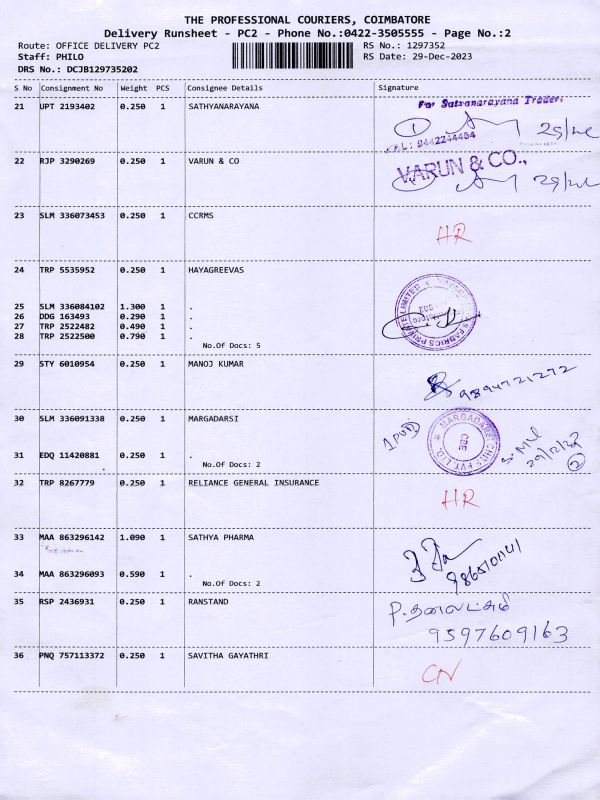 THE PROFESSIONAL COURIERS, COIMBATORE
Delivery Runsheet - PC2 - Phone No.:0422-3505555 - Page No.:2
Route: OFFICE DELIVERY PC2 RS No.: 1297352
Staff: PHILO RS Date: 29-Dec-2023
DRS No.: DCJB129735202
S No Consignment No Weight PCS Consignee Details Signature
21 UPT 2193402 0.250 1 SATHYANARAYANA For Satyanarayana Traders
CELL: 9442244464
22 RJP 3290269 0.250 1 VARUN & CO VARUN & CO.,
23 SLM 336073453 0.250 1 CCRMS HR
24 TRP 5535952 0.250 1 HAYAGREEVAS
25 SLM 336084102 1.300 1 .
26 DDG 163493 0.290 1 .
27 TRP 2522482 0.490 1 .
28 TRP 2522500 0.790 1 .
No.Of Docs: 5
29 STY 6010954 0.250 1 MANOJ KUMAR 9894721272
30 SLM 336091338 0.250 1 MARGADARSI
31 EDQ 11420881 0.250 1 . 29/12/23
No.Of Docs: 2 2
32 TRP 8267779 0.250 1 RELIANCE GENERAL INSURANCE HR
33 MAA 863296142 1.090 1 SATHYA PHARMA
34 MAA 863296093 0.590 1 .
No.Of Docs: 2
35 RSP 2436931 0.250 1 RANSTAND P. தனலட்சுமி
9597609163
36 PNQ 757113372 0.250 1 SAVITHA GAYATHRI CN